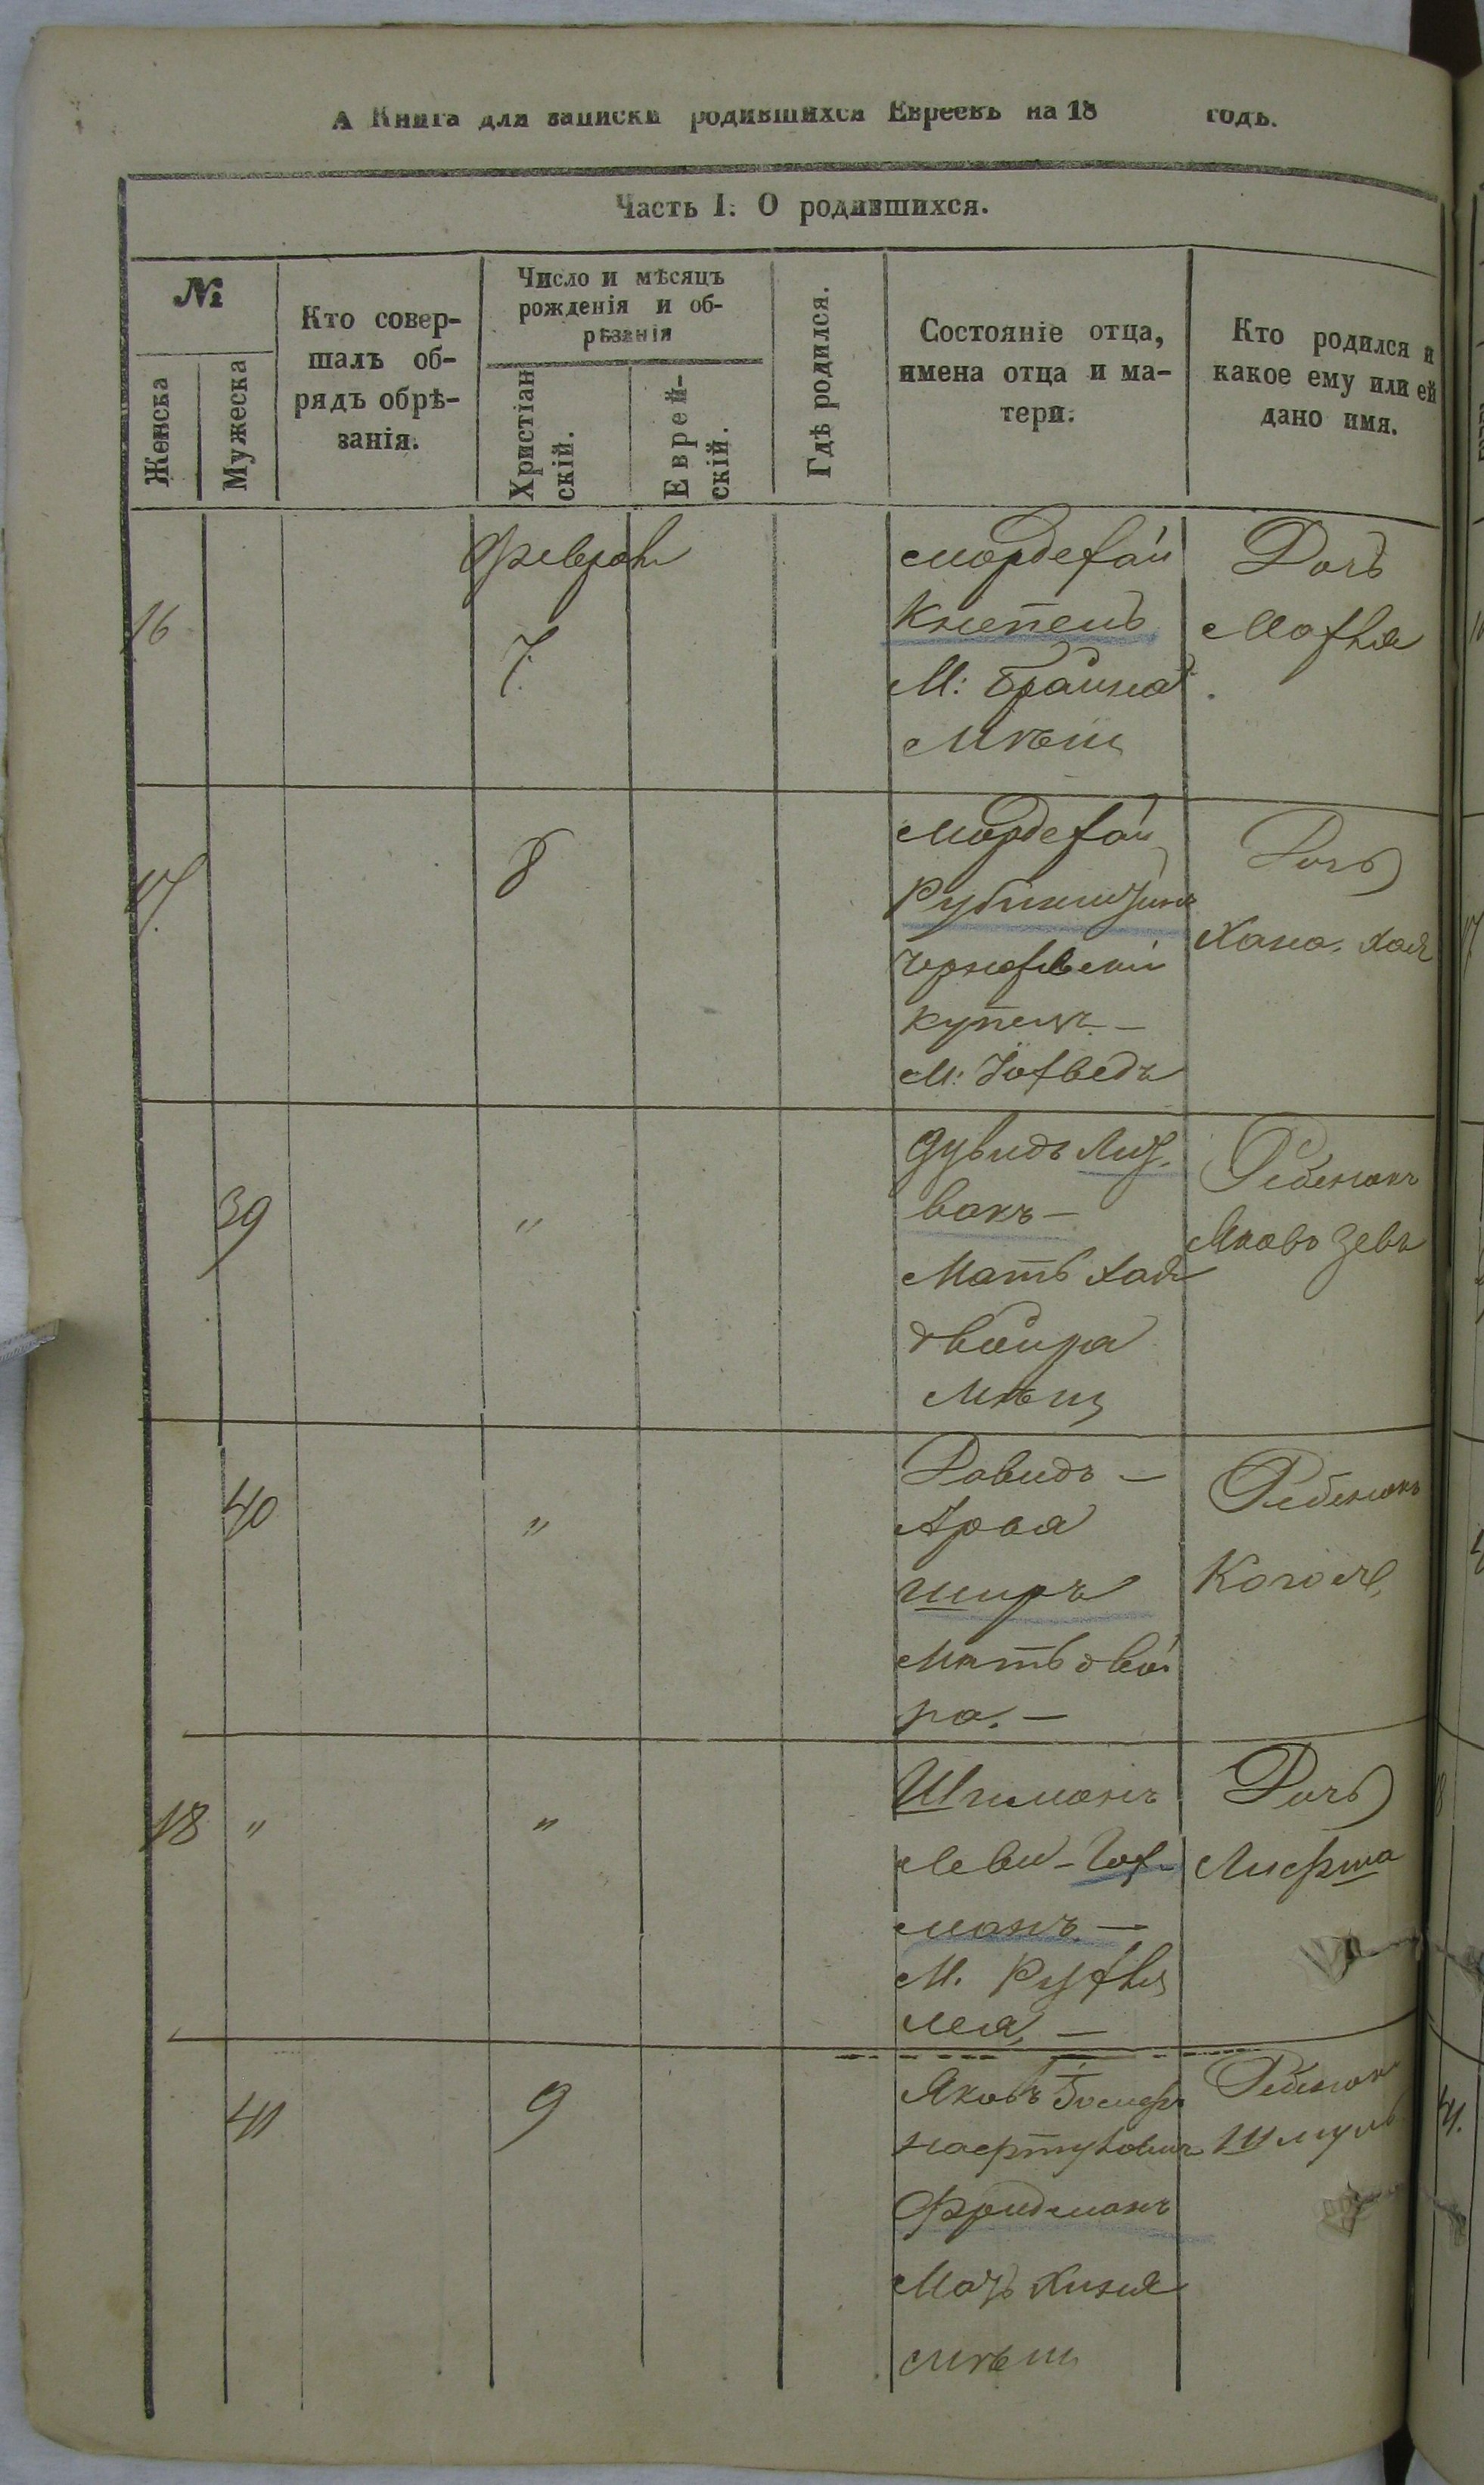 А Книга для записки родившихся Евреевъ на 18 годъ.
Часть I. О родившихся.
№
Женска
Мужеска
Кто совер-
шалъ об-
рядъ обрѣ-
занія.
Число и мѣсяцъ
рожденія и об-
рѣзанія
Христіан
скій.
Еврей-
скій.
Гдѣ родился.
Состояніе отца,
имена отца и ма-
тери.
Кто родился и
какое ему или ей
дано имя.
16
Февраль
7.
Мордехай
М: Брайна
мѣщ
Дочь
17.
8
Мордехай
купецъ —
М: Іохведъ
Дочь
Хана, Хая
39
"
Дувидъ Лит-
вакъ —
Мать Хая
двойра
мѣщ
Ребенокъ
Яковъ Зевъ
40
"
Давидъ —
Арья
ширъ
Мать двой
ра. —
Ребенокъ
18 "
"
Шлимонъ
Леви - Гох-
манъ. —
М. Рухля
лея, —
Дочь
41
9
Яковъ
Фридманъ
Мать Хизия
мѣщ
Ребенокъ
Шмуль